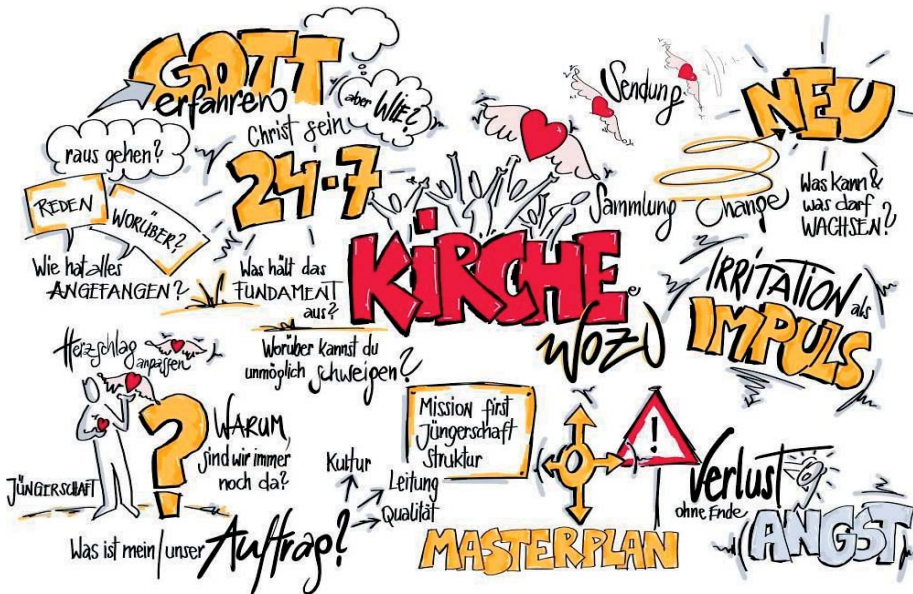 GOTT
erfahren
aber WIE?
raus gehen?
Christ sein
24·7
REDEN
WORÜBER?
Wie hat alles
ANGEFANGEN?
Was hält das
FUNDAMENT
aus?
Worüber kannst du
unmöglich schweigen?
KIRCHE
WOZU
Sendung
Sammlung
Change
NEU
Was kann &
was darf
WACHSEN?
IRRITATION als
IMPULS
Herzschlag
anpassen
JÜNGERSCHAFT
?
WARUM
sind wir immer
noch da?
Was ist mein/unser
Auftrag?
Kultur
Leitung
Qualität
Mission first
Jüngerschaft
Struktur
MASTERPLAN
!
Verlust
ohne Ende
ANGST